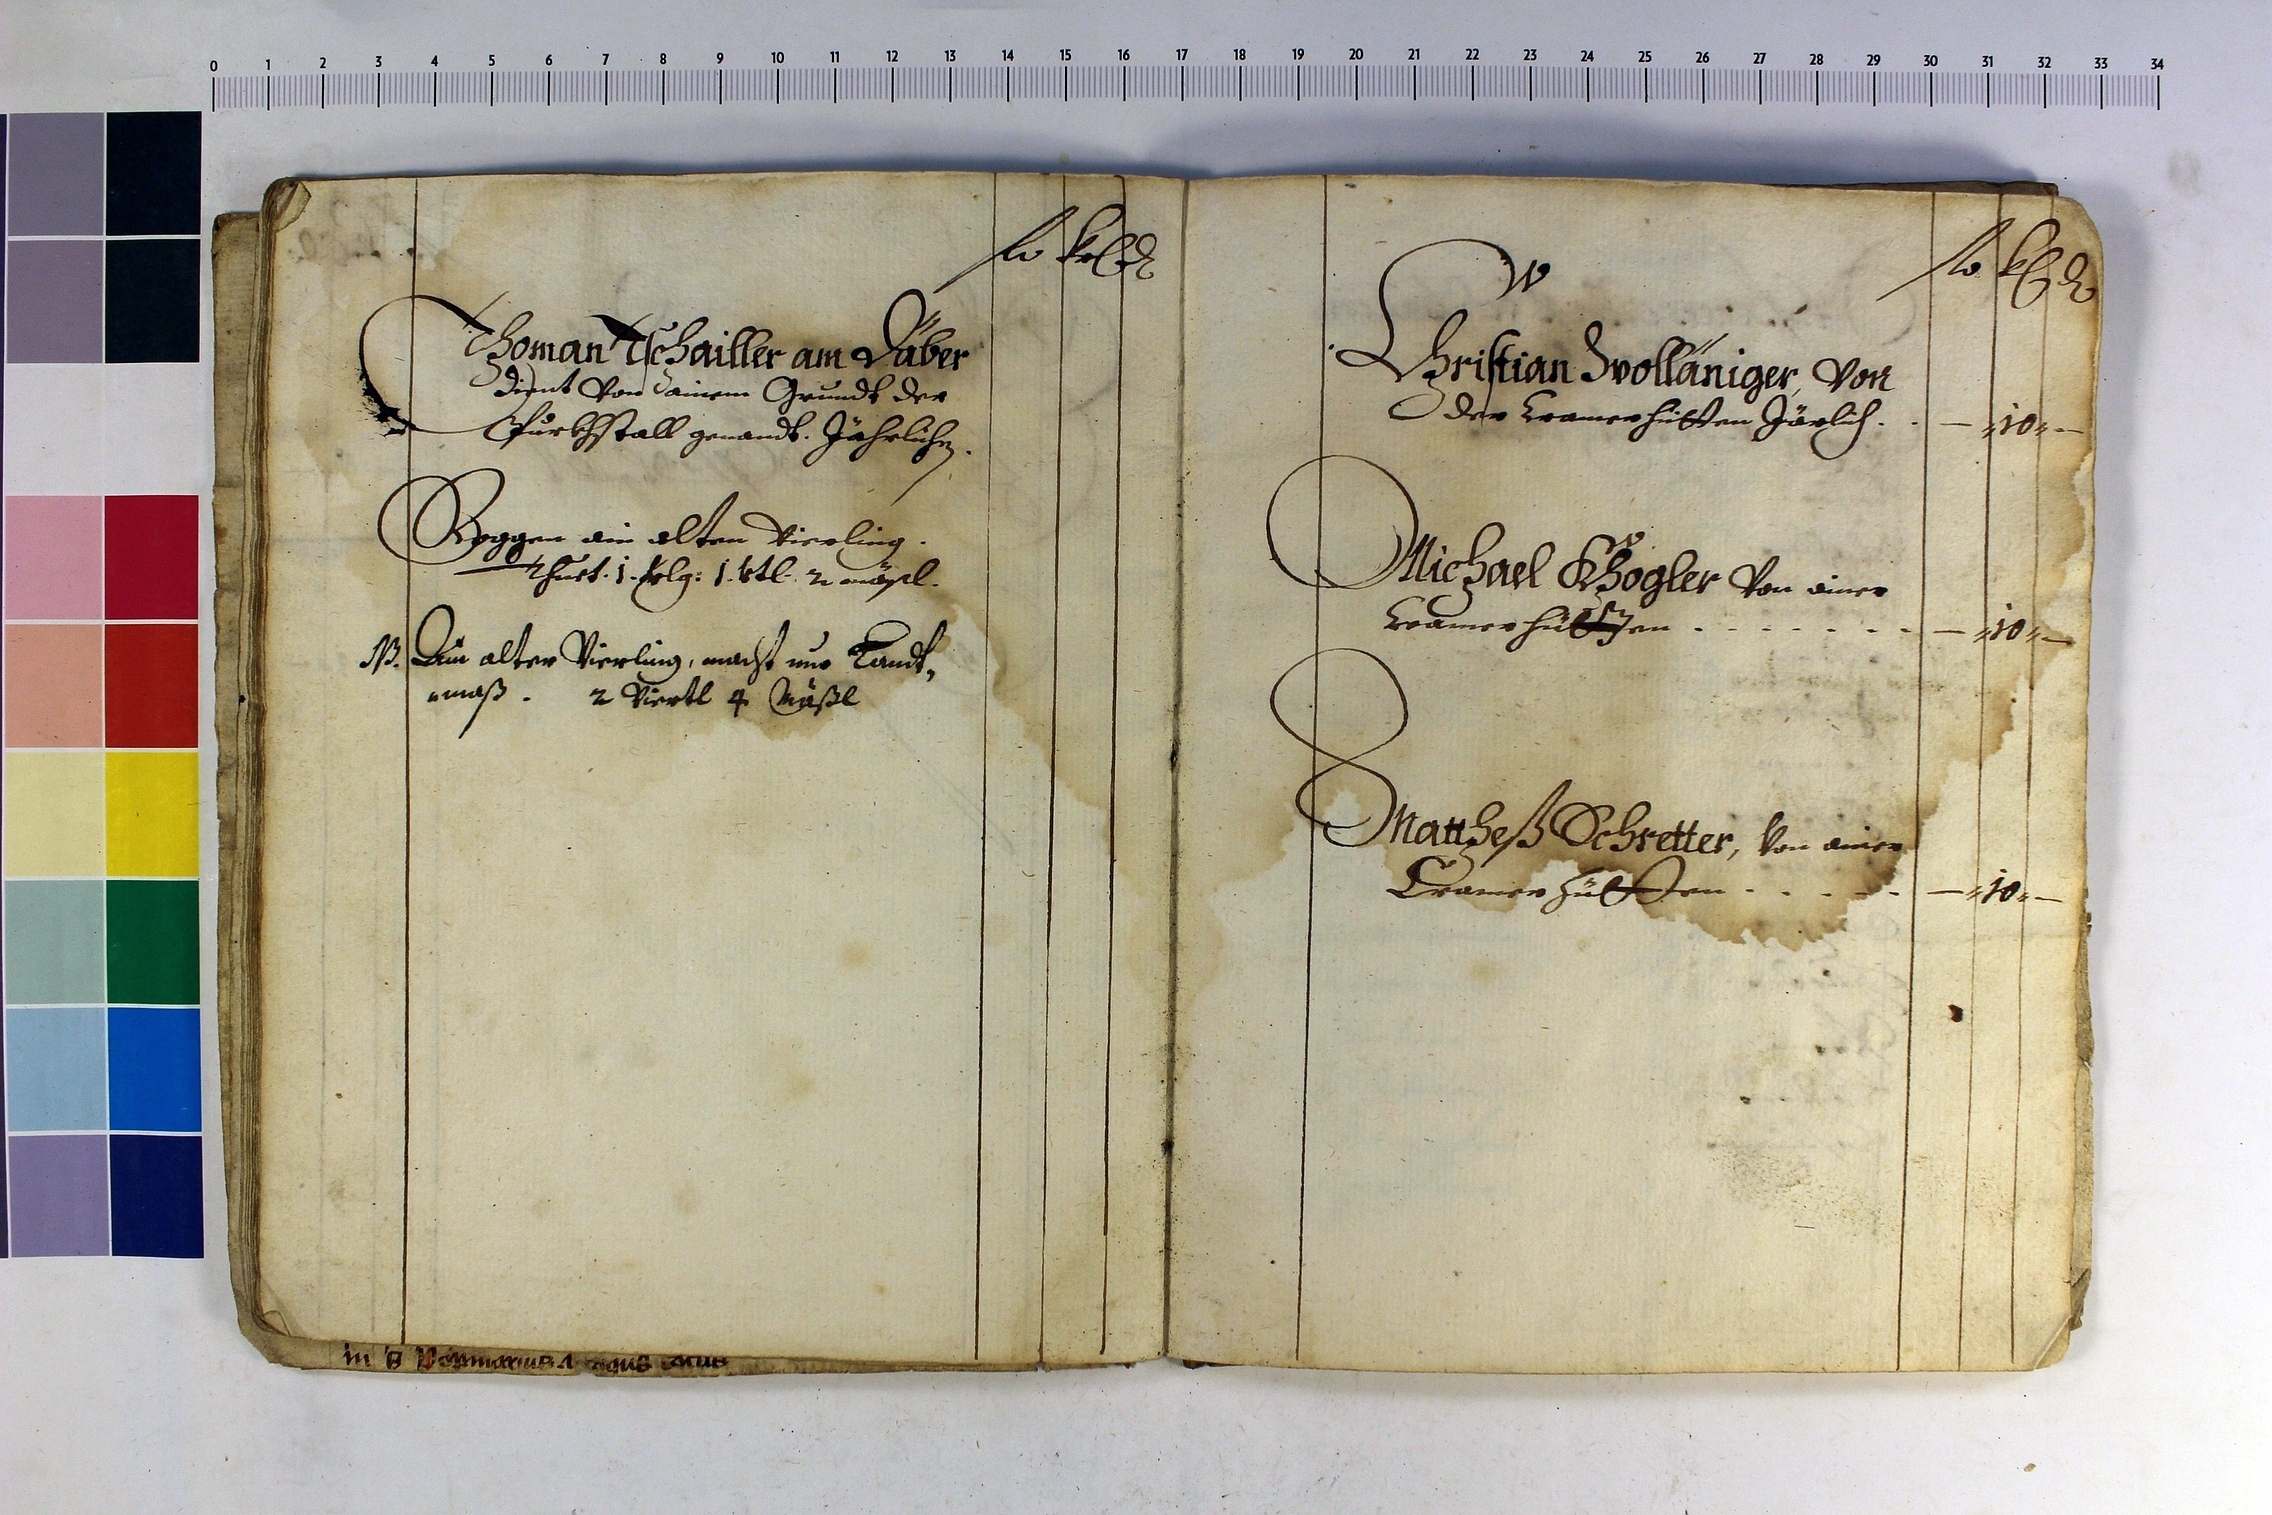 0 1 2 3 4 5 6 7 8 9 10 11 12 13 14 15 16 17 18 19 20 21 22 23 24 25 26 27 28 29 30 31 32 33 34
fl kr ₰
Thoman Tschailler am Däber
dient von ainem Grundt der
Purkhstall genandt. Jährlichen.
Roggen ain alten Vierling.
thuet. 1. 1. vtl. 2 mäsl.
NB. Ain alter Vierling, macht nur Landt„
„maß. 2 Viertl 4 Mäßl
fl kr ₰
Christian Zwolläniger, von
der Kramerhütten Järlich. . — „10„ —
Michael Khogler von ainer
Kramerhütten . . . . . . . — „10„ —
Mattheß Schretter, von ainer
Cramerhütten . . . . . — „10„ —